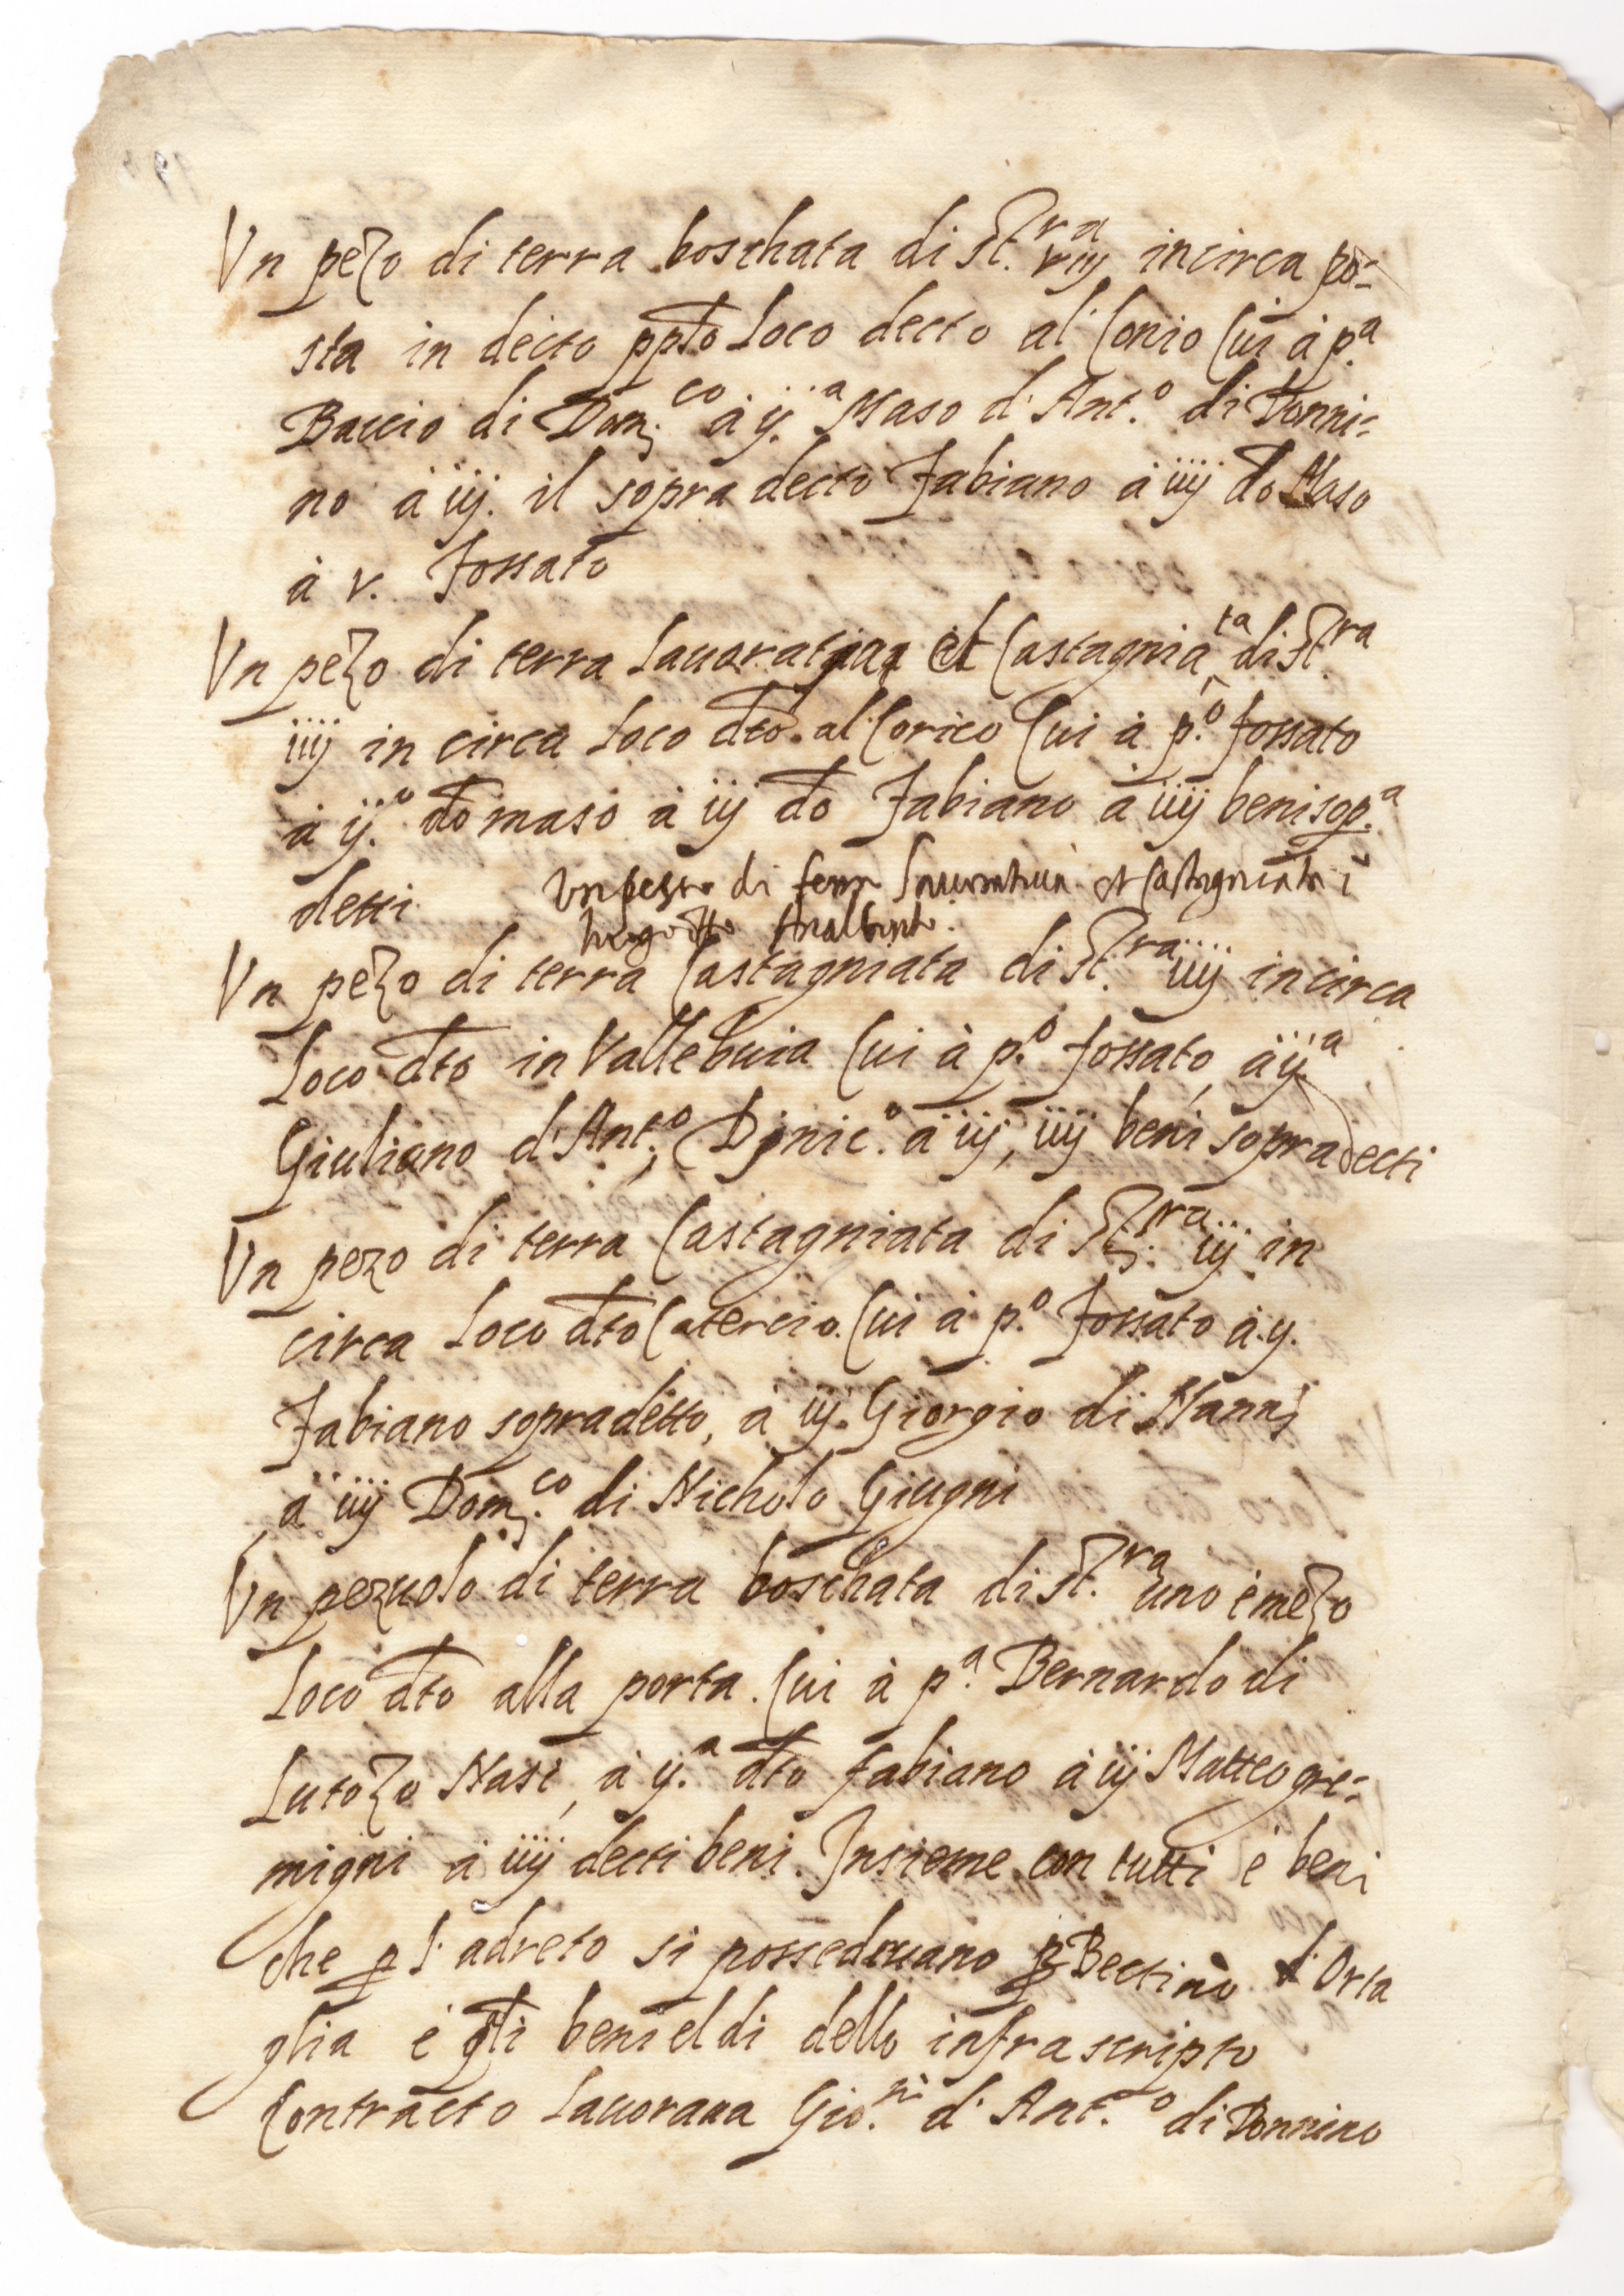 Vn pezo di terra boschata di St.ra viij incirca po-
sta in decto ppto Loco decto al Conio Cui à p.a
Baccio di Domco à ij.a Maso d'Ant.o di Donni-
no à iij. il sopra decto Fabiano à iiij do Maso
à v. Fossato
Vn pezo di terra Lauoratiua et Castagniata di St.ra
iiij in circa Loco dto al Corico Cui à p.o fossato
à ij.o do maso à iij do Fabiano à iiij beni sop.a
detti
Vn pezzo di terra Lauoratiua et Castagniata i
luogo dtto
Vn pezo di terra Castagniata di St.ra iiij incirca
Loco dto in Vallebuia Cui à p.o fossato, à ij.a
Giuliano d'Ant.o, Djnic.o à iij, iiij beni sopradecti
Vn pezo di terra Castagniata di St.ra iij in
circa Loco dto Catercio. Cui à p.o Fossato à.ij.
Fabiano sopradetto, à iij. Giorgio di Nanni
à iiij Dom.co di Nicholo Giugni
Vn pezuolo di terra boschata di St.ra uno e mezo
Loco dto alla porta. Cui à p.a Bernardo di
Lutozo Nasi, à ij.a dto Fabiano à iij Matteo gre-
migni à iiij decti beni. Insieme con tutti e beni
che p l'adreto si possedeuano p Bectino d'Orta
glia e gli beni eldi dello infrascripto
Contracto Lauoraua Gio.ni d'Ant.o di Donnino